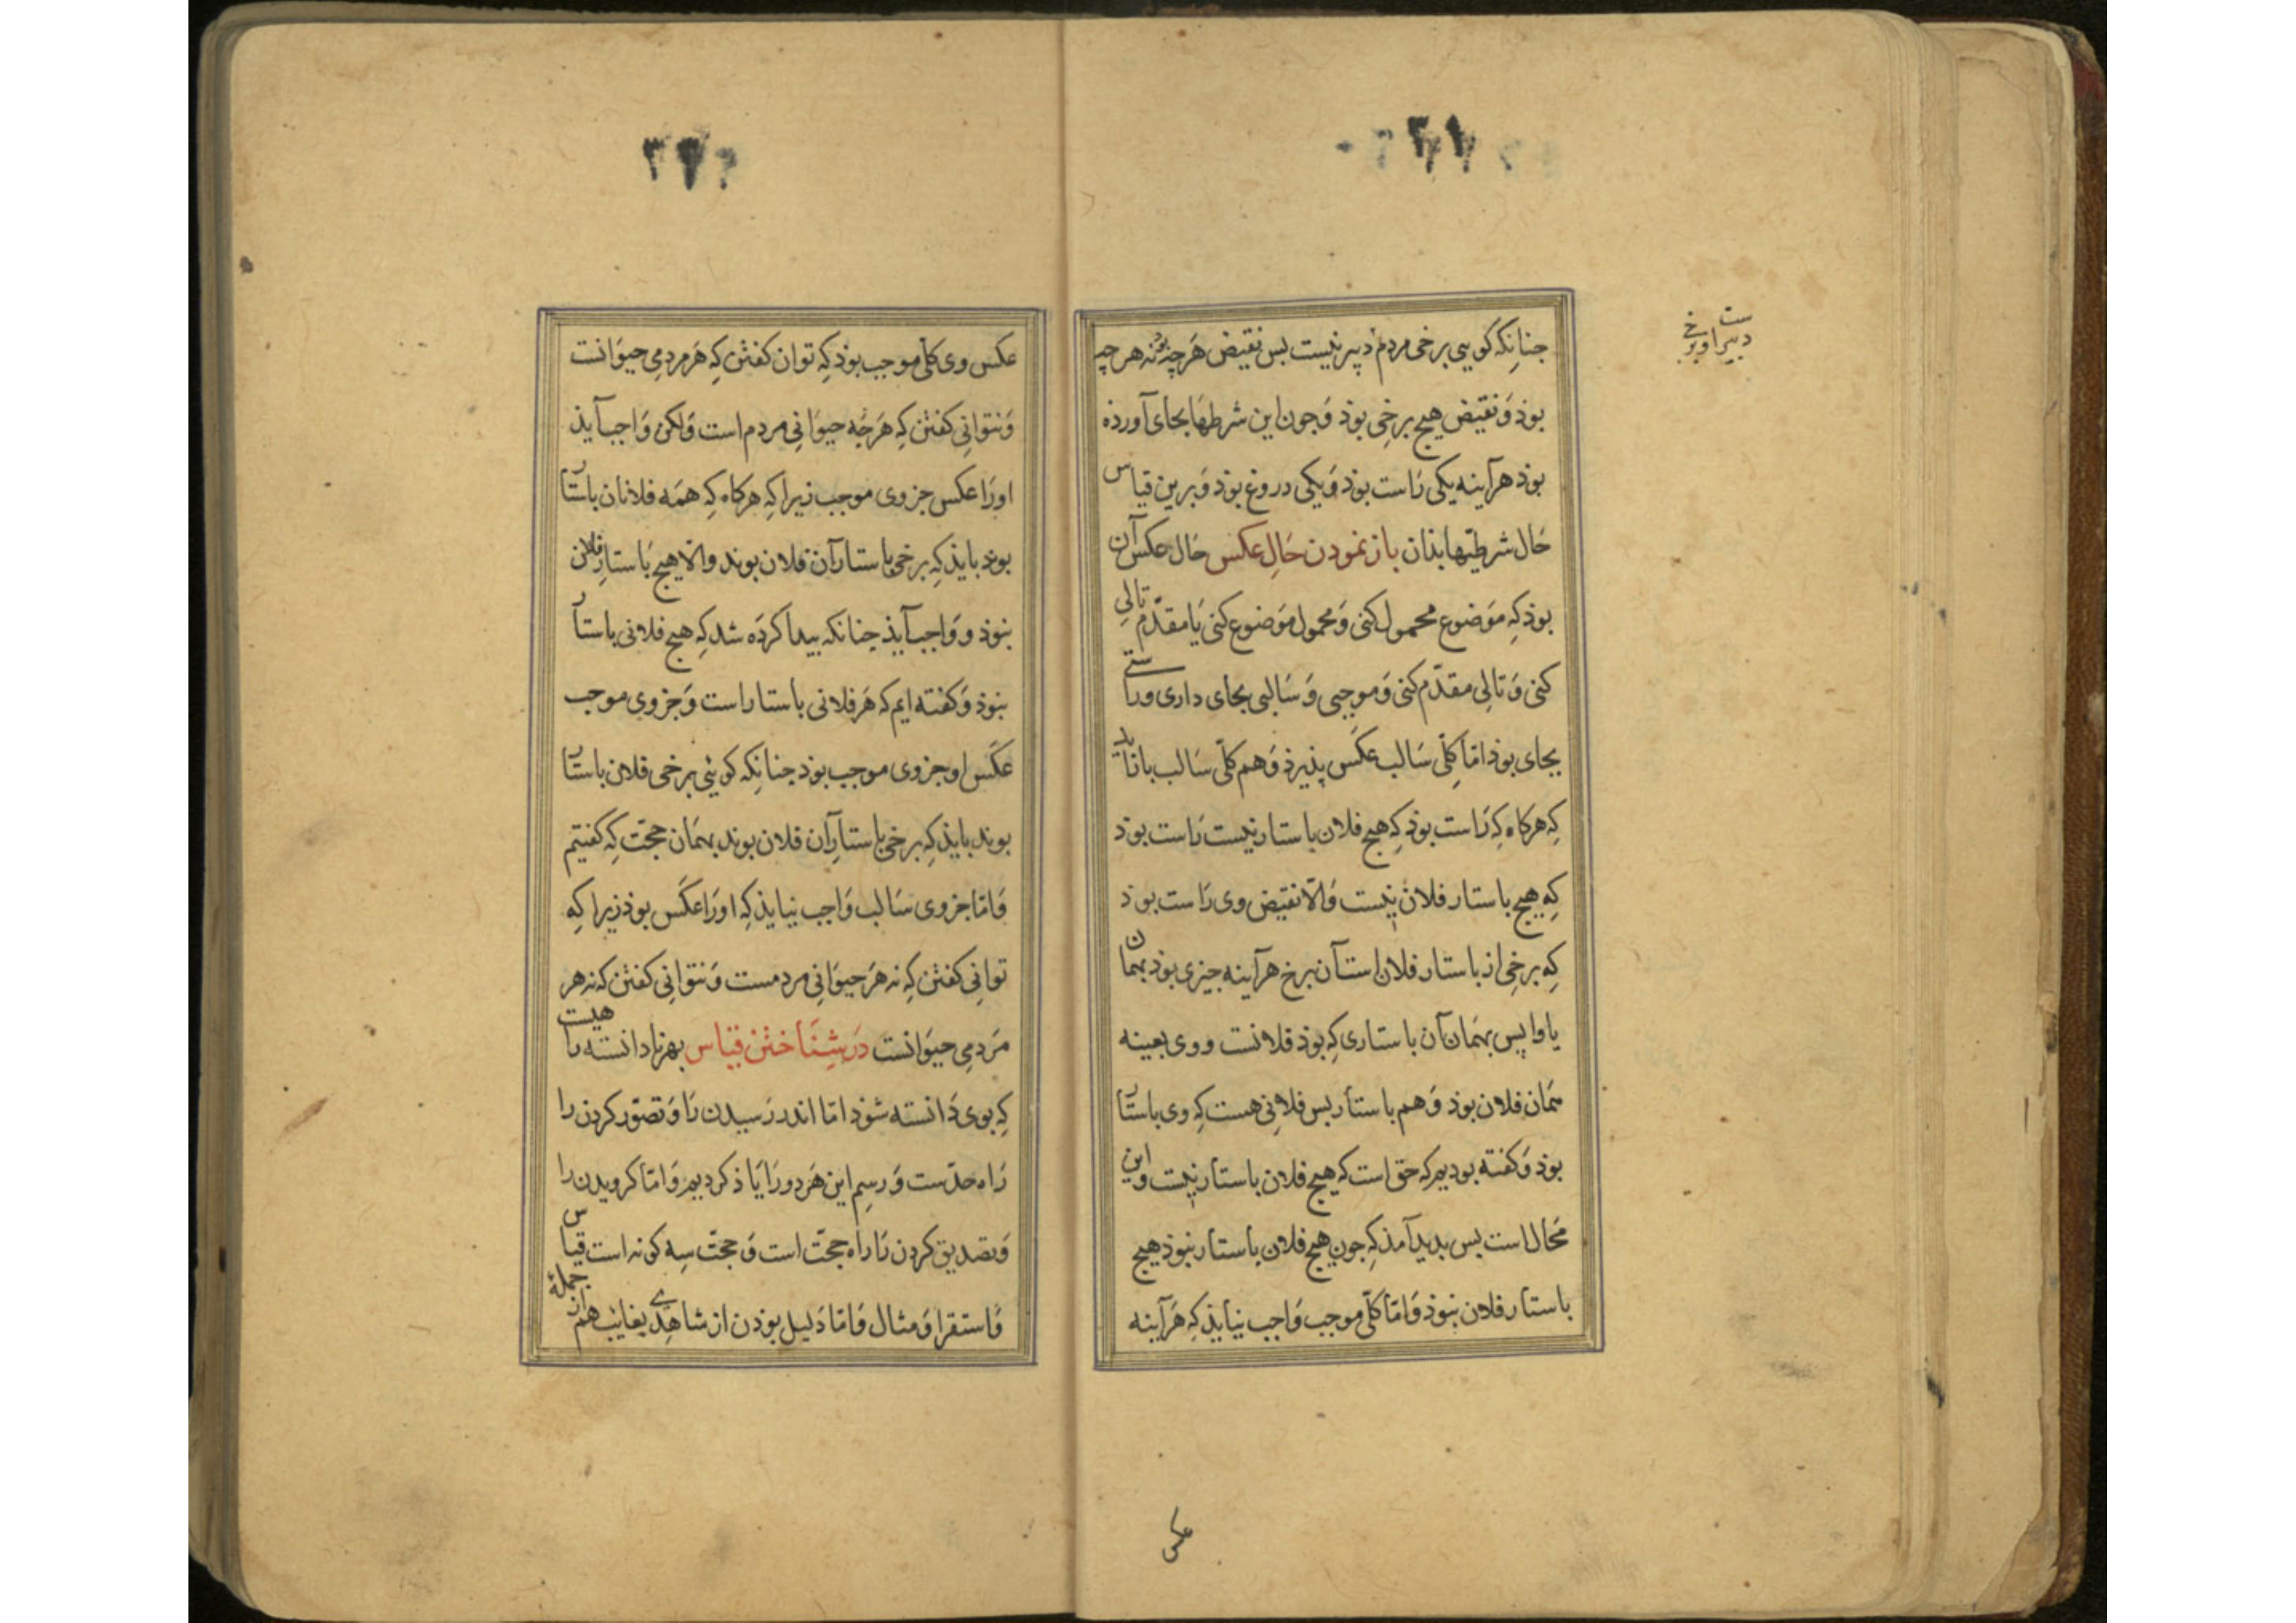 ۳۱
دبیرست
اوبرخی
جنانکه کویی برخی مردم دبیر نیست بس نقیض هرچه بوذ نه هرچه
بوذ وَ نقیض هیچ برخی بوذ وَجون این شرطهَا بجای آورذه
بوذ هرآینه یکی رَاست بوذ وَیکی دروغ بوذ وَ برین قیاس
حَال شرطیّها بذان باز نمودن حَالِ عکس حَال عکس آن
بوذ کِه مَوضوع محمول کنی وَمحمول مَوضوع کنی یَا مقدّم تالِی
کنی وَ تالِی مقدّم کنی وَموجبی وَسَالبی بجای داری وراستی
بجای بوذ امّا کلّی سَالب عکس پذیرذ وَهم کلّی سَالب باز آید
کِه هرکاه کِه رَاست بوذ کِه هیچ فلان باستار نیست رَاست بوذ
کِه هیچ باستار فلان نیست وَالّا نقیض وی رَاست بوذ
کِه برخِی از باستار فلان است آن برخ هرآینه جیزی بوذ بهمان
یاوا پس بهمَان آن باستاری کِه بوذ فلانست ووی بعینه
همَان فلان بوذ وَهم باستار بس فلانِی هست کِه وی باستار
بوذ وَکفته بودیم که حق است که هیچ فلان باستار نیست واین
مَحال است بس بدید آمذ کِه جون هیچ فلان باستار نبوذ هیچ
باستار فلان نبوذ وَامّا کلّی موجب وَاجب نیَایذ کِه هَرآینه
عکس
۳۲
عکس وی کلّی موجب بوذ کِه توان کفتن کِه هَر مردمِی حیوَانست
وَنتوانِی کفتن کِه هَرجِه حیوَانِی مردم است وَلکن وَاجب آیذ
اورَا عکس جزوی موجب زیرا کِه هرکاه کِه همَه فلانان باستار
بوذ بایذ کِه برخی باستار آن فلان بوند والّا هیچ بَاستار فلان
نبوذ ووَاجب آیذ جنانکه بیدا کردَه شد کِه هیچ فلانی باستار
نبوذ وَکفته ایم که هَر فلانی باستار است وَجزوی موجب
عکس او جزوی موجب بوذ جنانکِه کویئی برخی فلان باستار
بوند بایذ کِه برخی باستار آن فلان بوند بهمَان حجّت کِه کفتیم
وَامّا جزوی سَالب وَاجب نیایذ کِه اورَا عکس بوذ زیرا کِه
توانِی کفتن کِه نه هَر حیوَانِی مردمست وَنتوانِی کفتن که نه هر
مَردمِی حیوَانست دَر شِنَاختن قیَاس بهر نادانسته را هیست
کِه بوی دَانسته شوَذ امّا اندر رَسیدن رَا وَتصوّر کردن را
رَاه حدّست وَرسِم این هَر دو رَا یَاذ کردیم وَامّا کرویدن را
وَتصدیق کردن رَا راه حجّت است وَحجّت سِه کونه است قیاس
وَاستقرا وَمثال وَامّا دَلیل بوذن از شاهِدی بغایب هم از جملهٔ